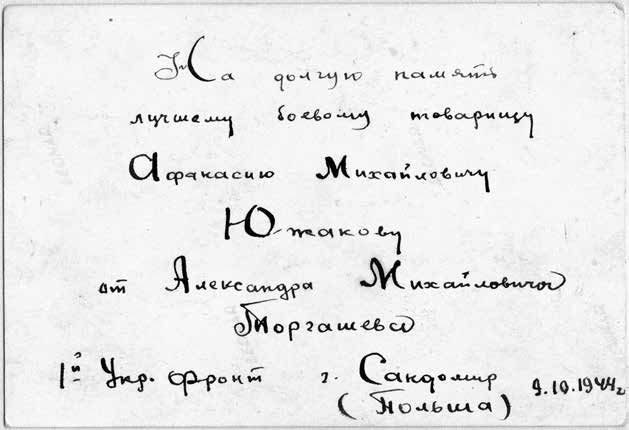 На долгую память
лучшему боевому товарищу
Афанасию Михайловичу
Южакову
от Александра Михайловича
Торгашева
1й Укр. Фронт г. Сандомир
(Польша) 9.10.1944г